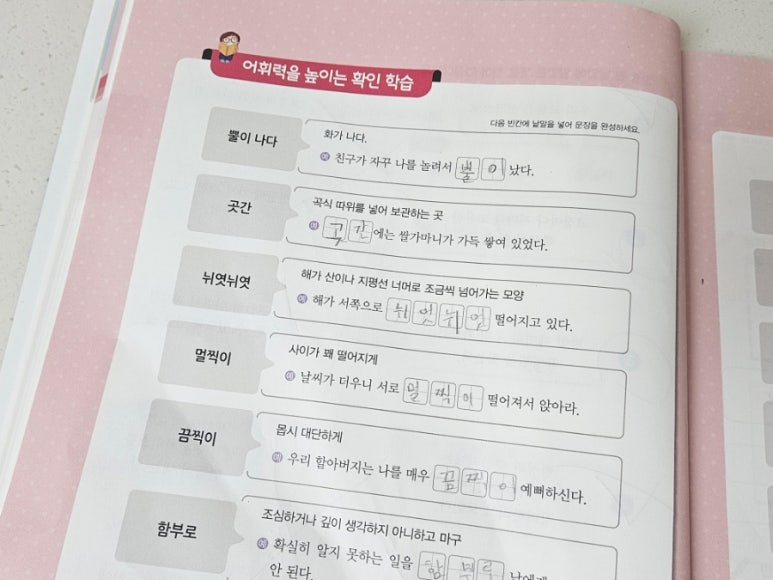 어휘력을 높이는 확인 학습
다음 빈칸에 낱말을 넣어 문장을 완성하세요.
뿔이 나다
화가 나다.
예 친구가 자꾸 나를 놀려서 뿔이 났다.
곳간
곡식 따위를 넣어 보관하는 곳
예 곳간에는 쌀가마니가 가득 쌓여 있었다.
뉘엿뉘엿
해가 산이나 지평선 너머로 조금씩 넘어가는 모양
예 해가 서쪽으로 뉘엿뉘엿 떨어지고 있다.
멀찍이
사이가 꽤 떨어지게
예 날씨가 더우니 서로 멀찍이 떨어져서 앉아라.
끔찍이
몹시 대단하게
예 우리 할아버지는 나를 매우 끔찍이 예뻐하신다.
함부로
조심하거나 깊이 생각하지 아니하고 마구
예 확실히 알지 못하는 일을 함부로 남에게
안 된다.